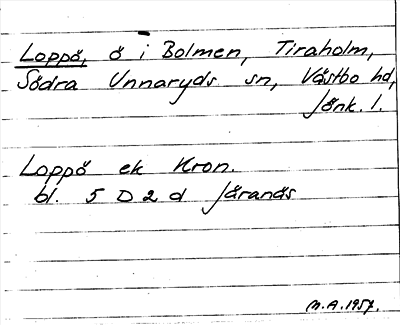 Loppö, ö i Bolmen, Tiraholm,
Södra Unnaryds sn, Västbo hd,
Jönk. l.
Loppö ek Kron.
bl. 5 D 2 d Järanäs
M.A. 1957.